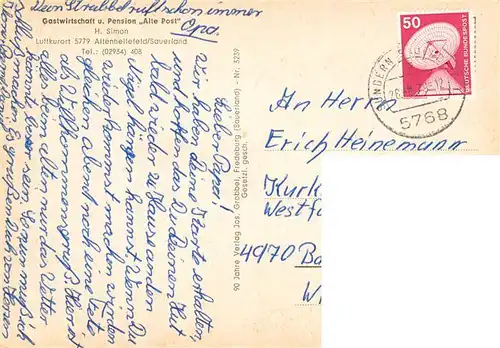 Dein Strubbel ruft schon immer
Opa.
Gastwirtschaft u. Pension „Alte Post“
H. Simon
Luftkurort 5779 Altenhellefeld/Sauerland
Tel.: (02934) 438
Lieber Papa!
wir haben Deine Karte erhalten,
und hoffen das Du Deinen Hut
bald wieder zu Hause an den
Nagel hängen kannst. Wenn Du
wieder kommst machen wir den
gleichen abend noch eine Fete
als Willkommensgruß. Hier ist
alles beim alten nur das Wetter
90 Jahre Verlag Jos. Grobbel, Fredeburg (Sauerland) - Nr. 5239
Gesetzl. gesch.
50
DEUTSCHE BUNDESPOST
SUNDERN
5768
An Herrn
Erich Heinemann
Kurk
Westfa
4970 Ba
W